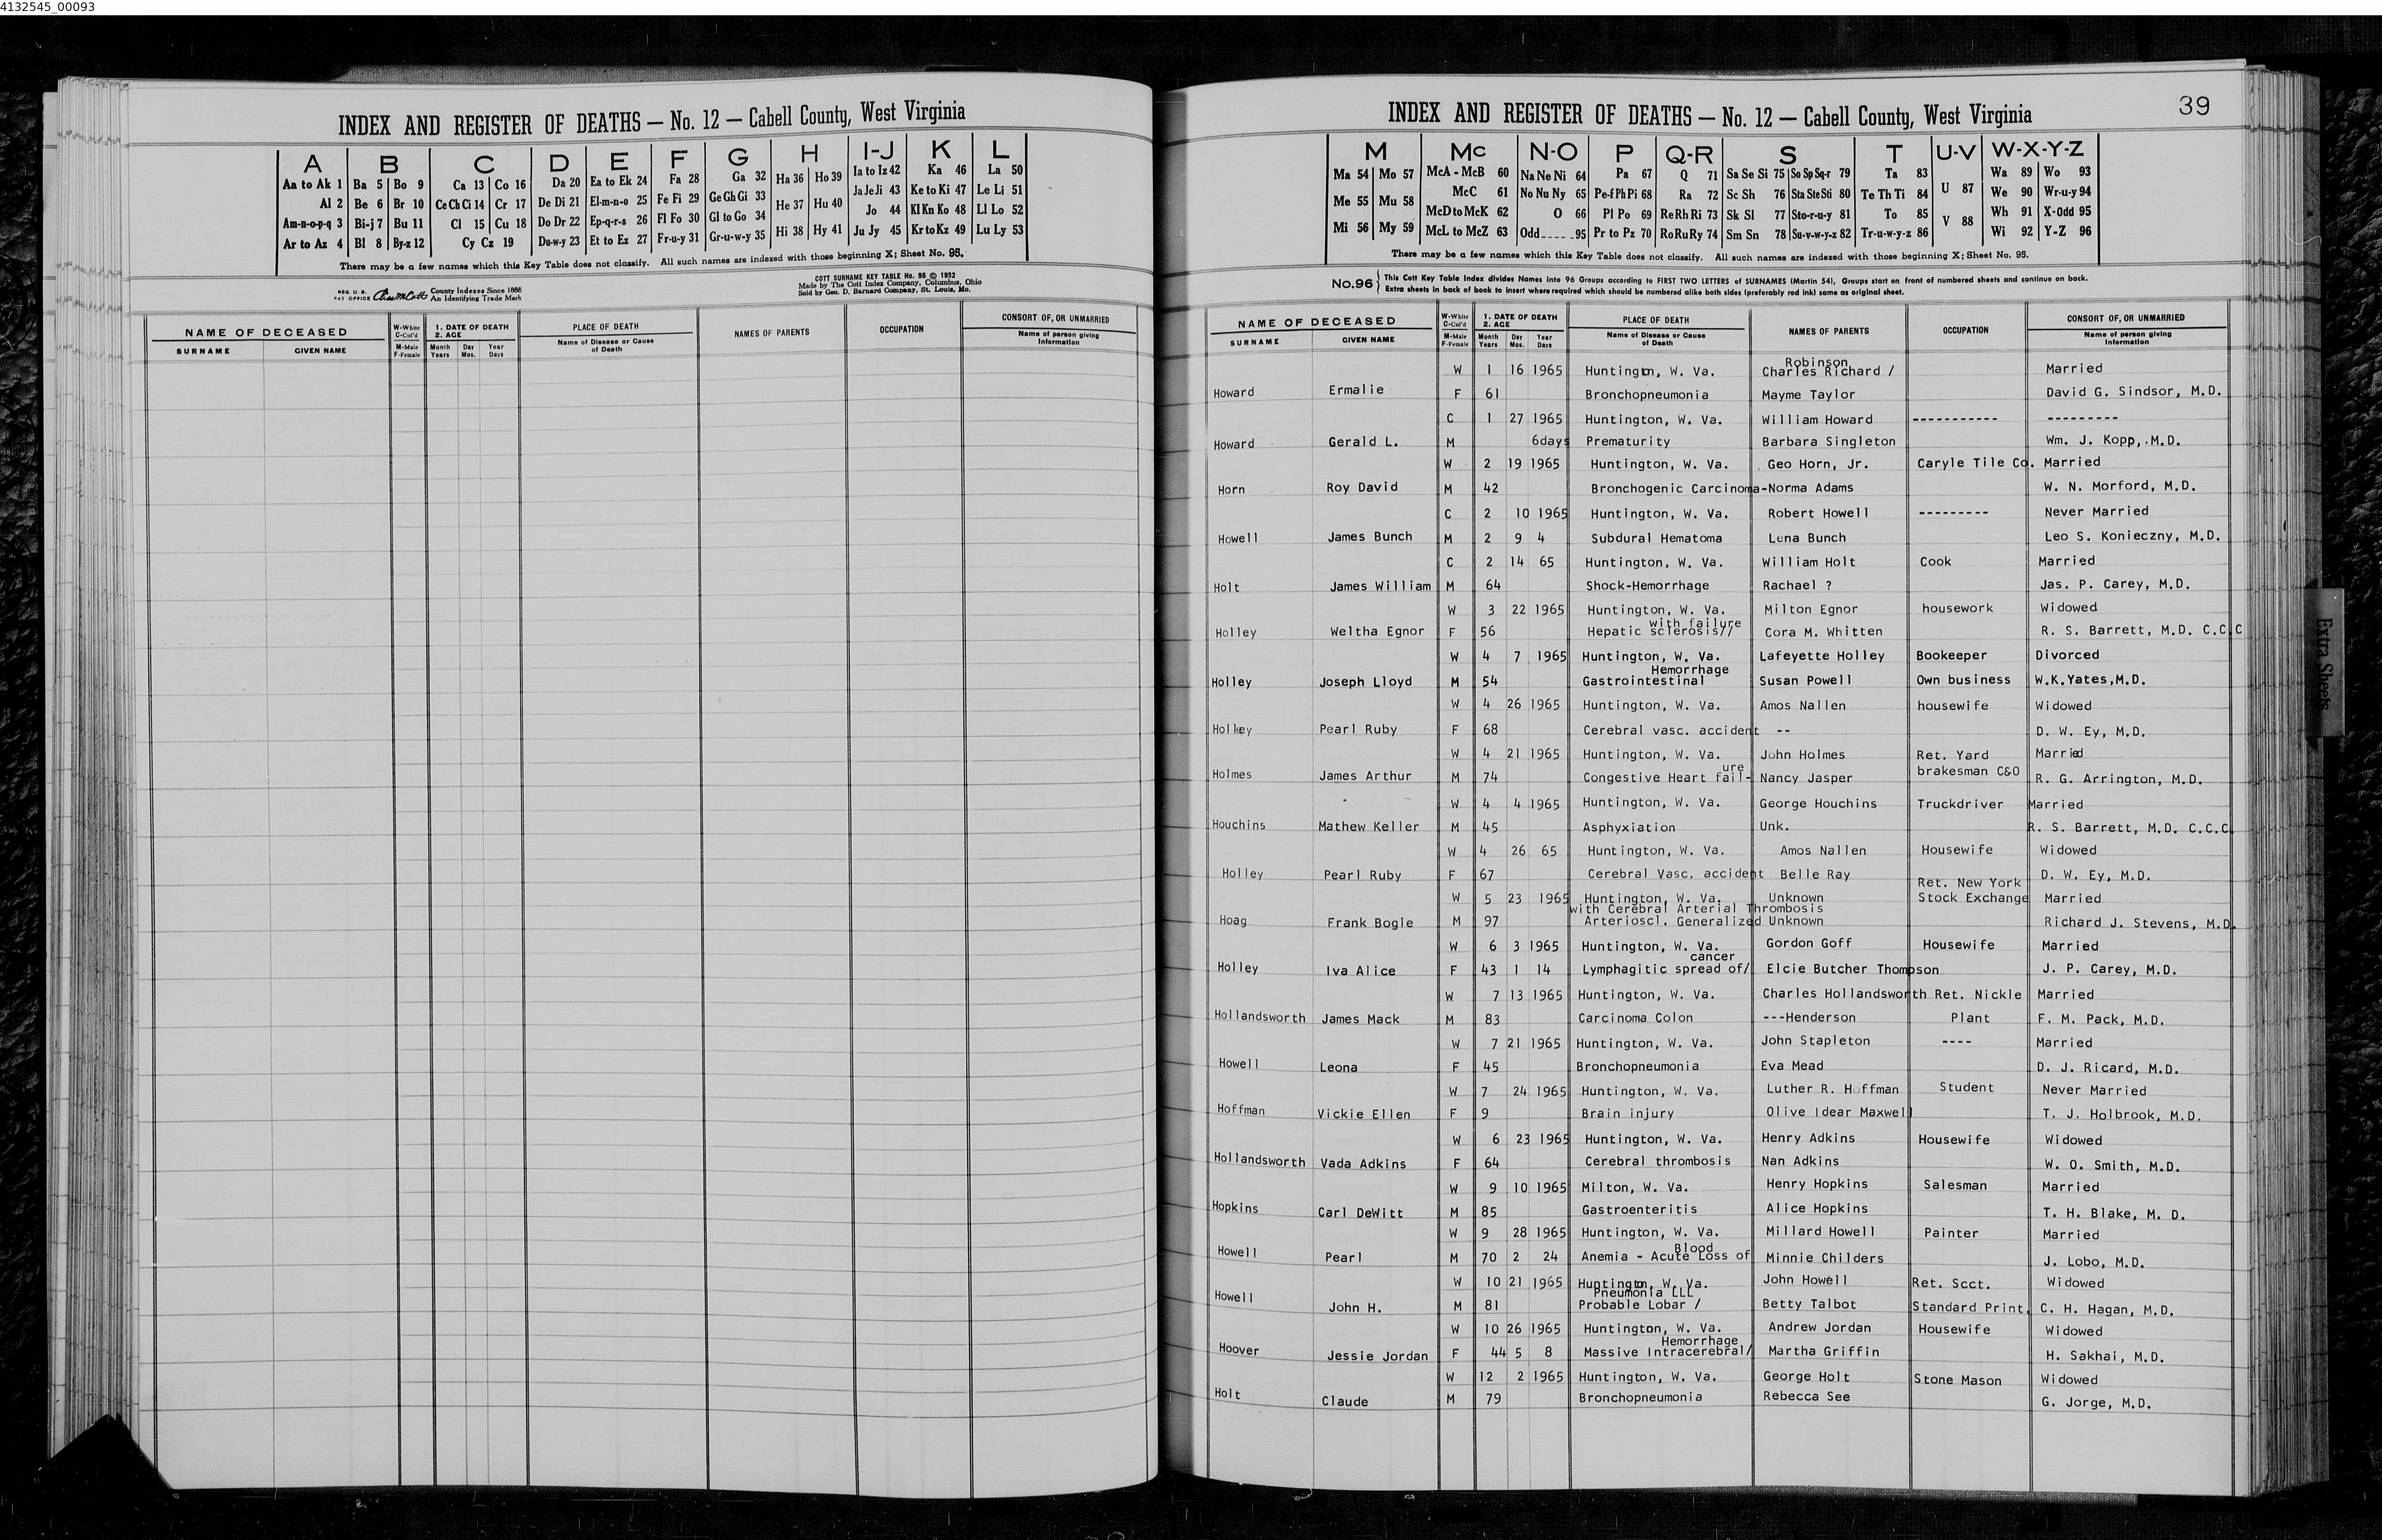 4132545_00093
INDEX AND REGISTER OF DEATHS — No. 12 — Cabell County, West Virginia
A B C D E F G H I-J K L
Aa to Ak 1 Ba 5 Bo 9 Ca 13 Co 16 Da 20 Ea to Ek 24 Fa 28 Ga 32 Ha 36 Ho 39 Ia to Iz 42 Ka 46 La 50
Al 2 Be 6 Br 10 Ce Ch Ci 14 Cr 17 De Di 21 El-m-n-o 25 Fe Fi 29 Ge Gh Gi 33 He 37 Hu 40 Ja Je Ji 43 Ke to Ki 47 Le Li 51
Am-n-o-p-q 3 Bi-j 7 Bu 11 Cl 15 Cu 18 Do Dr 22 Ep-q-r-s 26 Fl Fo 30 Gl to Go 34 Jo 44 Kl Kn Ko 48 Ll Lo 52
Ar to Az 4 Bl 8 By-z 12 Cy Cz 19 Du-w-y 23 Et to Ez 27 Fr-u-y 31 Gr-u-w-y 35 Hi 38 Hy 41 Ju Jy 45 Kr to Kz 49 Lu Ly 53
There may be a few names which this Key Table does not classify. All such names are indexed with those beginning X; Sheet No. 95.
REG. U. S. PAT. OFFICE County Indexes Since 1888 An Identifying Trade Mark
COTT SURNAME KEY TABLE No. 96 © 1952
Made by The Cott Index Company, Columbus, Ohio
Sold by Geo. D. Barnard Company, St. Louis, Mo.
NAME OF DECEASED W-White C-Col'd 1. DATE OF DEATH 2. AGE PLACE OF DEATH NAMES OF PARENTS OCCUPATION CONSORT OF, OR UNMARRIED
SURNAME GIVEN NAME M-Male F-Female Month Years Day Mos. Year Days Name of Disease or Cause of Death Name of person giving Information
39
INDEX AND REGISTER OF DEATHS — No. 12 — Cabell County, West Virginia
M Mc N-O P Q-R S T U-V W-X-Y-Z
Ma 54 Mo 57 McA - McB 60 Na Ne Ni 64 Pa 67 Q 71 Sa Se Si 75 So Sp Sq-r 79 Ta 83 Wa 89 Wo 93
Me 55 Mu 58 McC 61 No Nu Ny 65 Pe-f Ph Pi 68 Ra 72 Sc Sh 76 Sta Ste Sti 80 Te Th Ti 84 U 87 We 90 Wr-u-y 94
McD to McK 62 O 66 Pl Po 69 Re Rh Ri 73 Sk Sl 77 Sto-r-u-y 81 To 85 V 88 Wh 91 X-Odd 95
Mi 56 My 59 McL to McZ 63 Odd 95 Pr to Pz 70 Ro Ru Ry 74 Sm Sn 78 Su-v-w-y-z 82 Tr-u-w-y-z 86 Wi 92 Y-Z 96
There may be a few names which this Key Table does not classify. All such names are indexed with those beginning X; Sheet No. 95.
No.96 { This Cott Key Table Index divides Names into 96 Groups according to FIRST TWO LETTERS of SURNAMES (Martin 54), Groups start on front of numbered sheets and continue on back.
Extra sheets in back of book to insert where required which should be numbered alike both sides (preferably red ink) same as original sheet.
NAME OF DECEASED W-White C-Col'd 1. DATE OF DEATH 2. AGE PLACE OF DEATH NAMES OF PARENTS OCCUPATION CONSORT OF, OR UNMARRIED
SURNAME GIVEN NAME M-Male F-Female Month Years Day Mos. Year Days Name of Disease or Cause of Death Name of person giving Information
Robinson
W 1 16 1965 Huntington, W. Va. Charles Richard / Married
Howard Ermalie F 61 Bronchopneumonia Mayme Taylor David G. Sindsor, M.D.
C 1 27 1965 Huntington, W. Va. William Howard ----------- ---------
Howard Gerald L. M 6days Prematurity Barbara Singleton Wm. J. Kopp, M.D.
W 2 19 1965 Huntington, W. Va. Geo Horn, Jr. Caryle Tile Co. Married
Horn Roy David M 42 Bronchogenic Carcinoma-Norma Adams W. N. Morford, M.D.
C 2 10 1965 Huntington, W. Va. Robert Howell --------- Never Married
Howell James Bunch M 2 9 4 Subdural Hematoma Lena Bunch Leo S. Konieczny, M.D.
C 2 14 65 Huntington, W. Va. William Holt Cook Married
Holt James William M 64 Shock-Hemorrhage Rachael ? Jas. P. Carey, M.D.
W 3 22 1965 Huntington, W. Va. Milton Egnor housework Widowed
with failure
Holley Weltha Egnor F 56 Hepatic sclerosis// Cora M. Whitten R. S. Barrett, M.D. C.C.C
W 4 7 1965 Huntington, W. Va. Lafeyette Holley Bookeeper Divorced
Hemorrhage
Holley Joseph Lloyd M 54 Gastrointestinal Susan Powell Own business W.K.Yates,M.D.
W 4 26 1965 Huntington, W. Va. Amos Nallen housewife Widowed
Holley Pearl Ruby F 68 Cerebral vasc. accident -- D. W. Ey, M.D.
W 4 21 1965 Huntington, W. Va. John Holmes Ret. Yard Married
ure brakesman C&O
Holmes James Arthur M 74 Congestive Heart fail- Nancy Jasper R. G. Arrington, M.D.
W 4 4 1965 Huntington, W. Va. George Houchins Truckdriver Married
Houchins Mathew Keller M 45 Asphyxiation Unk. R. S. Barrett, M.D. C.C.C.
W 4 26 65 Huntington, W. Va. Amos Nallen Housewife Widowed
Holley Pearl Ruby F 67 Cerebral Vasc. accident Belle Ray D. W. Ey, M.D.
Ret. New York
W 5 23 1965 Huntington, W. Va. Unknown Stock Exchange Married
with Cerebral Arterial Thrombosis
Hoag Frank Bogle M 97 Arterioscl. Generalized Unknown Richard J. Stevens, M.D.
W 6 3 1965 Huntington, W. Va. Gordon Goff Housewife Married
cancer
Holley Iva Alice F 43 1 14 Lymphagitic spread of/ Elcie Butcher Thompson J. P. Carey, M.D.
W 7 13 1965 Huntington, W. Va. Charles Hollandsworth Ret. Nickle Married
Hollandsworth James Mack M 83 Carcinoma Colon ---Henderson Plant F. M. Pack, M.D.
W 7 21 1965 Huntington, W. Va. John Stapleton ---- Married
Howell Leona F 45 Bronchopneumonia Eva Mead D. J. Ricard, M.D.
W 7 24 1965 Huntington, W. Va. Luther R. Hoffman Student Never Married
Hoffman Vickie Ellen F 9 Brain injury Olive Idear Maxwell T. J. Holbrook, M.D.
W 6 23 1965 Huntington, W. Va. Henry Adkins Housewife Widowed
Hollandsworth Vada Adkins F 64 Cerebral thrombosis Nan Adkins W. O. Smith, M.D.
W 9 10 1965 Milton, W. Va. Henry Hopkins Salesman Married
Hopkins Carl DeWitt M 85 Gastroenteritis Alice Hopkins T. H. Blake, M. D.
W 9 28 1965 Huntington, W. Va. Millard Howell Painter Married
Blood
Howell Pearl M 70 2 24 Anemia - Acute Loss of Minnie Childers J. Lobo, M.D.
W 10 21 1965 Huntington, W. Va. John Howell Ret. Scct. Widowed
Pneumonia LLL
Howell John H. M 81 Probable Lobar / Betty Talbot Standard Print. C. H. Hagan, M.D.
W 10 26 1965 Huntington, W. Va. Andrew Jordan Housewife Widowed
Hemorrhage
Hoover Jessie Jordan F 44 5 8 Massive Intracerebral/ Martha Griffin H. Sakhai, M.D.
W 12 2 1965 Huntington, W. Va. George Holt Stone Mason Widowed
Holt Claude M 79 Bronchopneumonia Rebecca See G. Jorge, M.D.
Extra Sheets